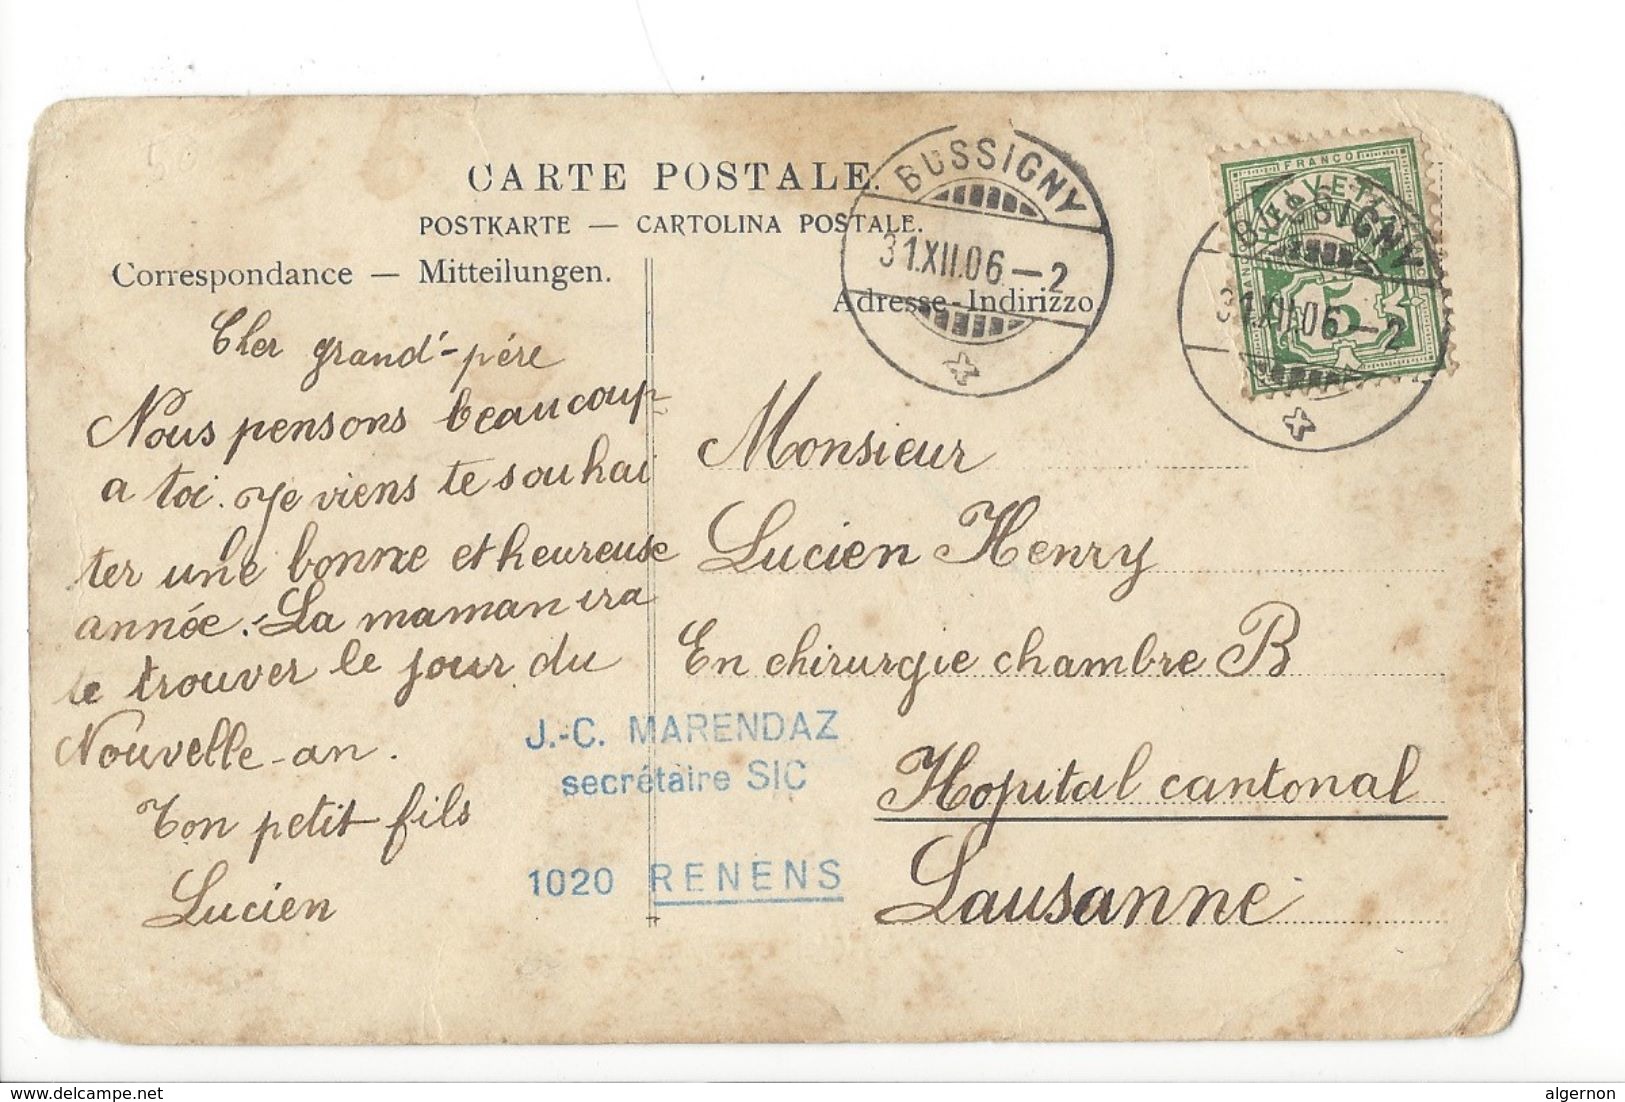 CARTE POSTALE.
POSTKARTE — CARTOLINA POSTALE.
Correspondance — Mitteilungen.
Adresse - Indirizzo
BUSSIGNY
31.XII.06—2
FRANCO
HELVETIA
5
BUSSIGNY
31.XII.06—2
Cher grand'-père
Nous pensons beaucoup
a toi. Je viens te souhai
ter une bonne et heureuse
année. La maman ira
te trouver le jour du
Nouvelle-an.
Ton petit fils
Lucien
Monsieur
Lucien Henry
En chirurgie chambre B
Hopital cantonal
Lausanne
J.-C. MARENDAZ
secrétaire SIC
1020 RENENS
delcampe.net
algernon